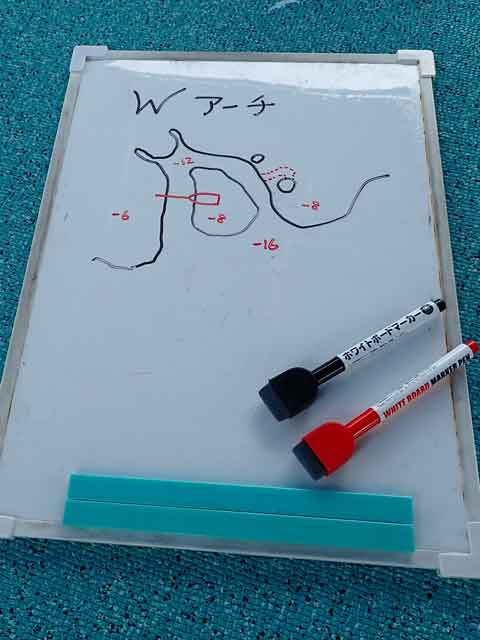 W アーチ
-12
-6
-8
-8
-16
ホワイトボードマーカー
WHITE BOARD MARKER PEN